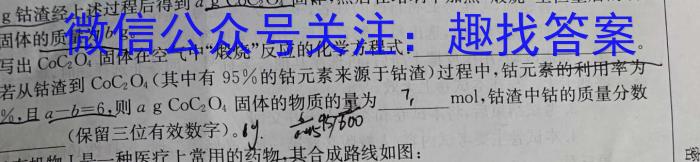 g 钴渣经上述过程后得到 a g CoC₂O₄
固体的质 b g。
微信公众号关注：趣找答案
写出 CoC₂O₄ 固体在空气中“煅烧”反应的化学方程式：
若从钴渣到 CoC₂O₄(其中有 95%的钴元素来源于钴渣)过程中,钴元素的利用率为
%,且 a—b=6,则 a g CoC₂O₄ 固体的物质的量为 7, mol,钴渣中钴的质量分数
(保留三位有效数字)。
是一种医疗上常用的药物,其合成路线如图: